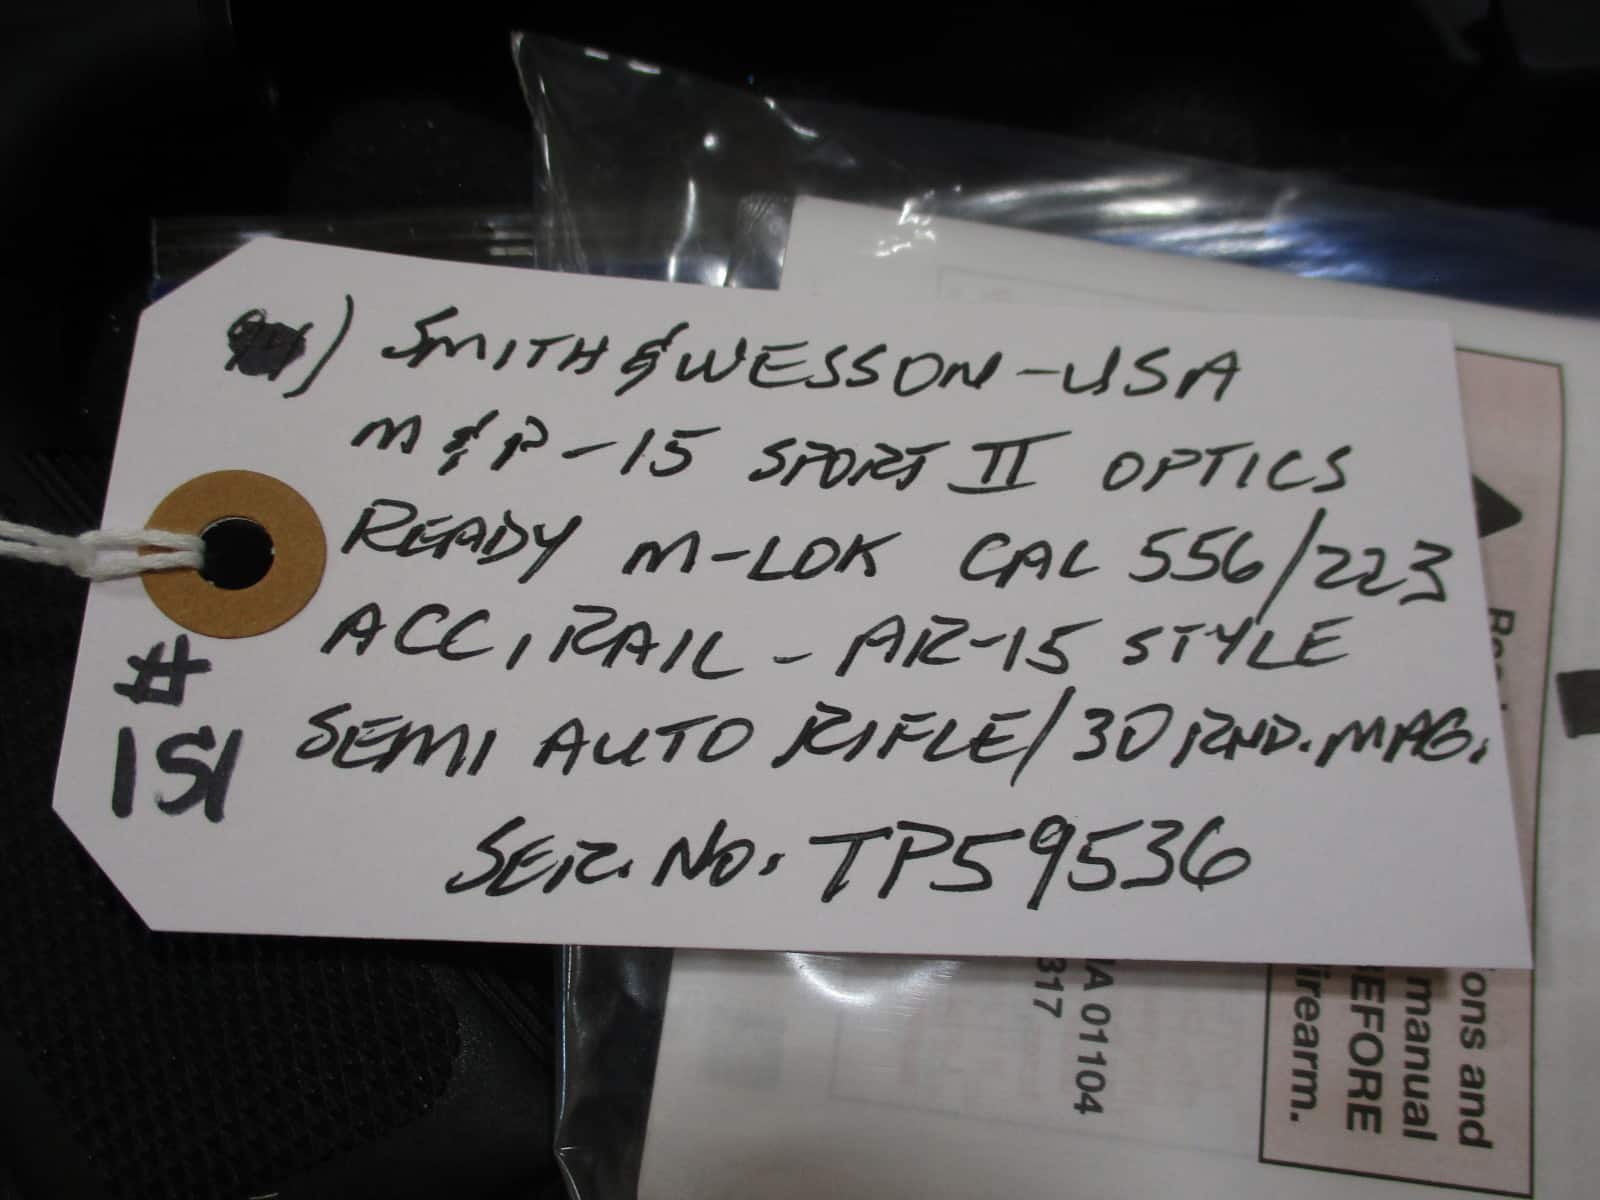 ) SMITH & WESSON - USA
M & P - 15 SPORT II OPTICS
READY M-LOK CAL 556/223
ACC, RAIL - AR-15 STYLE
SEMI AUTO RIFLE / 30 RND. MAG.
SER. NO. TP59536
#
151
ons and
manual
BEFORE
firearm.
MA 01104
317